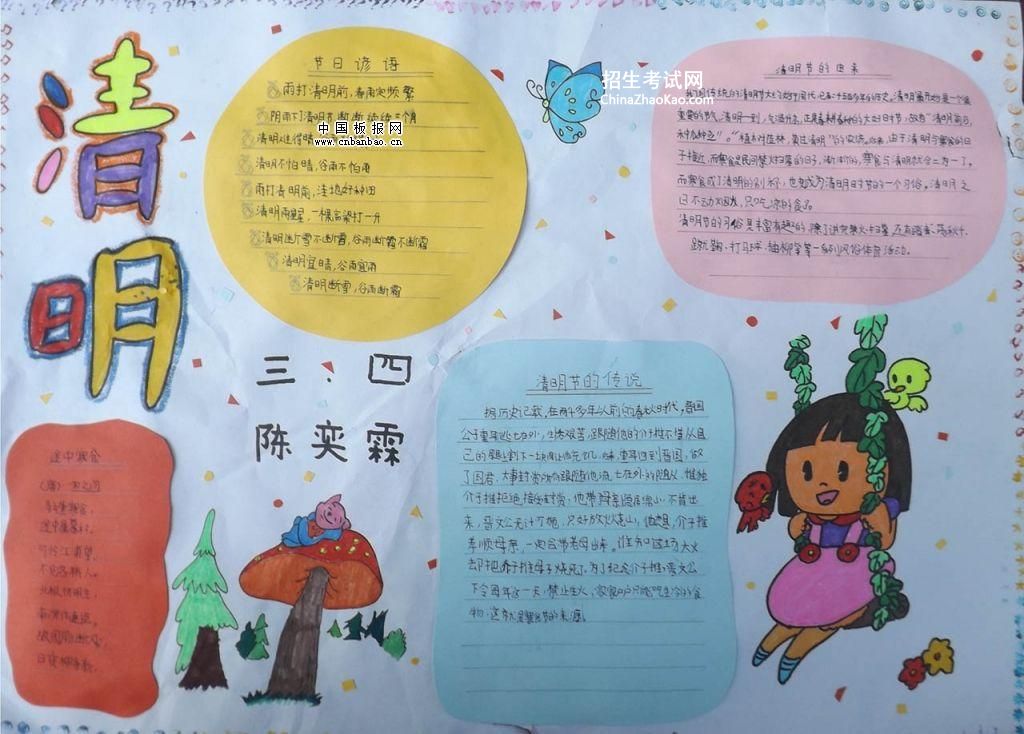 清明
节日谚语
雨打清明前，春雨定频繁
阴雨下清明节，断断续续三个月
清明难得晴
清明不怕晴，谷雨不怕雨
雨打清明前，洼地好种田
清明雨星星，一棵高粱打一升
清明断雪不断雪，谷雨断霜不断霜
清明宜晴，谷雨宜雨
清明断雪，谷雨断霜
中国板报网
www.cnbanbao.cn
招生考试网
ChinaZhaoKao.com
清明节的由来
我国传统的清明节大约始于周代，已有二千五百多年的历史。清明最开始是一个很
重要的节气，清明一到，气温升高，正是春耕春种的大好时节，故有“清明前后，
种瓜种豆”。“植树造林，莫过清明”的农谚。后来，由于清明与寒食的日
子接近，而寒食是民间禁火扫墓的日子，渐渐的，寒食与清明就合二为一了。
而寒食成了清明的别称，也变成为清明时节的一个习俗。清明之
日不动烟火，只吃凉的食品
清明节的习俗是丰富有趣的，除了讲究禁火扫墓，还有踏青、荡秋千、
蹴鞠、打马球、插柳等一系列风俗体育活动。
三．四
陈奕霖
清明节的传说
据历史记载，在两千多年以前的春秋时代，晋国
公子重耳逃亡在外，生活艰苦，跟随他的介子推不惜从自
己的腿上割下一块肉让他充饥。后来，重耳回到晋国，做
了国君，大事封赏所有跟随他流亡在外的随从，惟独
介子推拒绝接受封赏，他带母亲隐居绵山，不肯出
来，晋文公无计可施，只好放火烧山，他想，介子推
孝顺母亲，一定会带老母出来。谁知这场大火
却把介子推母子烧死了。为了纪念介子推，晋文公
下令每年这一天，禁止生火，家家户户只能吃生冷的食
物，这就是寒食节的来源。
途中寒食
（唐）宋之问
马上逢寒食，
途中属暮春。
可怜江浦望，
不见洛桥人。
北极怀明主，
南溟作逐臣。
故园肠断处，
日夜柳条新。